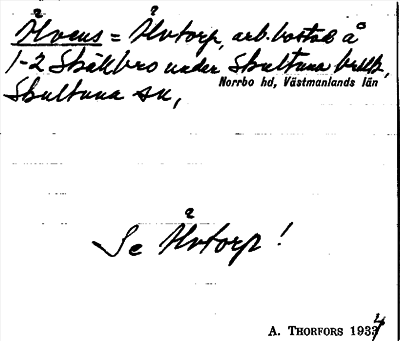 Ålvens = Åvtorp, arb.bostad å
1-2 Skälbro under Skultuna bruk,
Norrbo hd, Västmanlands län
Skultuna sn,
Se Åvtorp!
A. THORFORS 1934